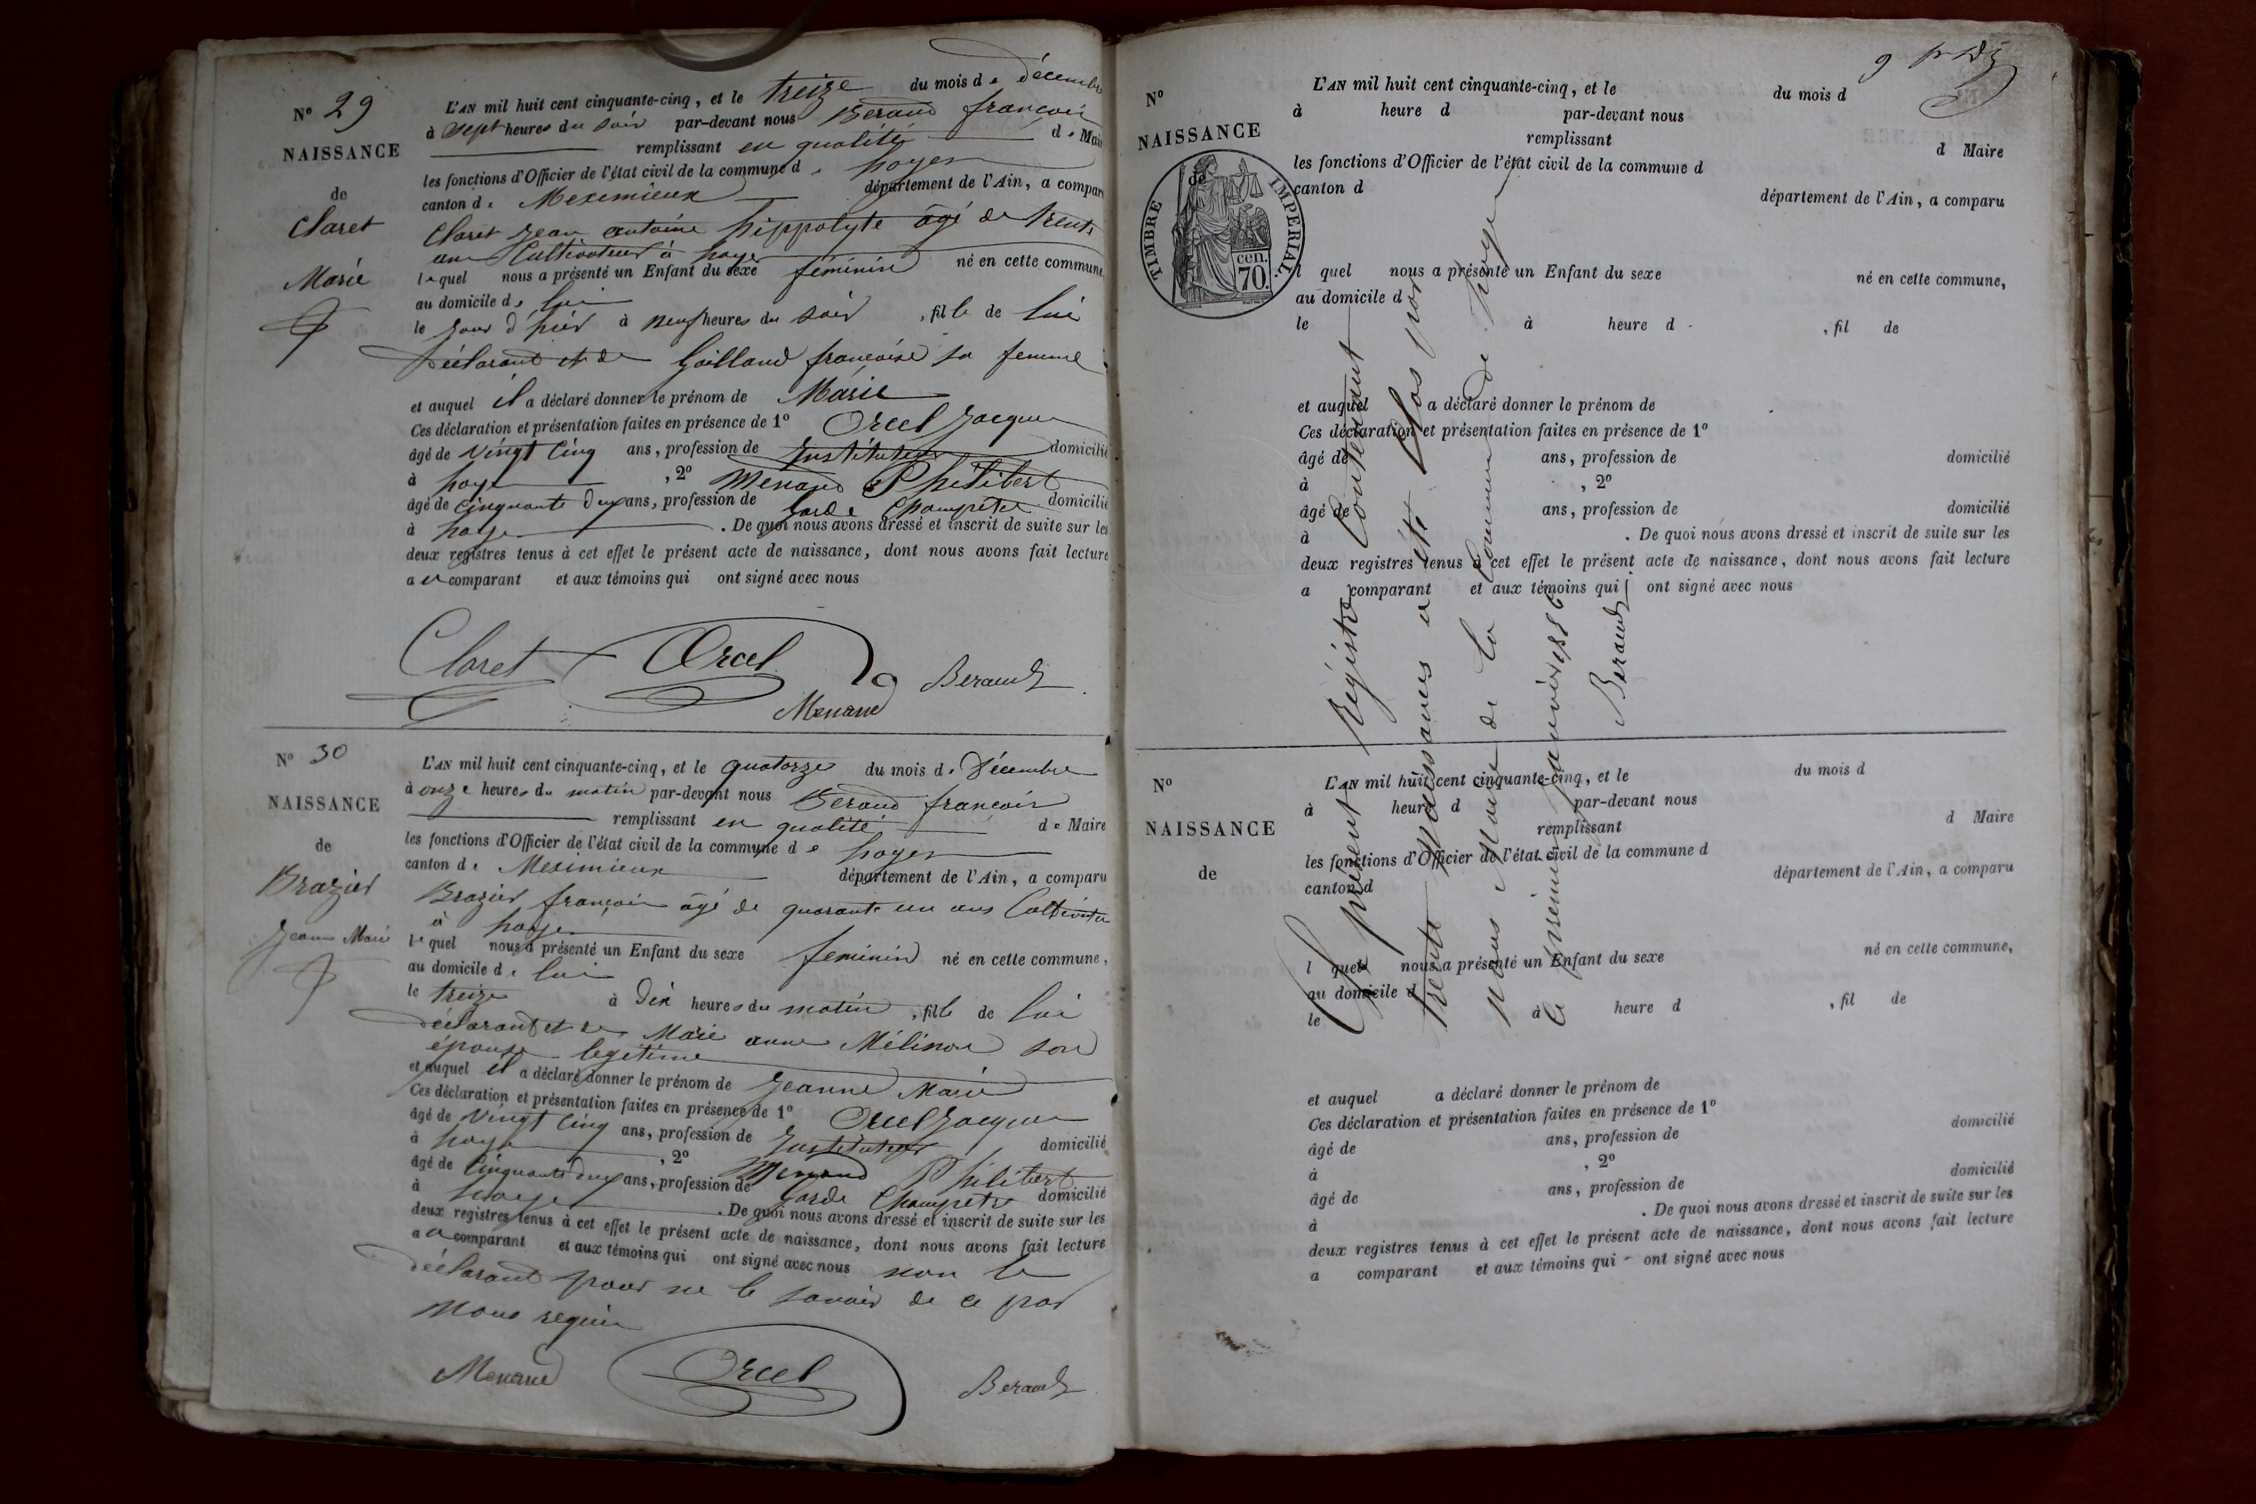 N° 29
NAISSANCE
de
Claret
Marie
L'AN mil huit cent cinquante-cinq, et le treize du mois de décembre
à sept heures du soir par-devant nous Beraud françois
remplissant en qualité de Maire
les fonctions d'Officier de l'état civil de la commune de
canton de Meximieux département de l'Ain, a comparu
Claret Jean antoine hippolyte âgé de trente
ans Cultivateur à
lequel nous a présenté un Enfant du sexe féminin né en cette commune
au domicile de lui
le jour d'hier à neuf heures du soir, fille de lui
déclarant et de Gailland françoise sa femme
et auquel il a déclaré donner le prénom de Marie
Ces déclaration et présentation faites en présence de 1° Orcel Jacques
âgé de vingt cinq ans, profession de Instituteur domicilié
à , 2° Menand Philibert
âgé de cinquante deux ans, profession de Garde Champetre domicilié
à . De quoi nous avons dressé et inscrit de suite sur les
deux registres tenus à cet effet le présent acte de naissance, dont nous avons fait lecture
au comparant et aux témoins qui ont signé avec nous
Claret Orcel Beraud
Menand
N° 30
NAISSANCE
de
Brazier
Jeanne Marie
L'AN mil huit cent cinquante-cinq, et le quatorze du mois de Décembre
à onze heures du matin par-devant nous Beraud françois
remplissant en qualité de Maire
les fonctions d'Officier de l'état civil de la commune de
canton de Meximieux département de l'Ain, a comparu
Brazier françois âgé de quarante un ans Cultivateur
à
lequel nous a présenté un Enfant du sexe feminin né en cette commune,
au domicile de lui
le treize à dix heures du matin, fille de lui
déclarant et de Marie anne Mélinon son
épouse legitime
et auquel il a déclaré donner le prénom de Jeanne Marie
Ces déclaration et présentation faites en présence de 1° Orcel Jacques
âgé de vingt cinq ans, profession de Instituteur domicilié
à , 2° Menand Philibert
âgé de cinquante deux ans, profession de Garde Champetre domicilié
à . De quoi nous avons dressé et inscrit de suite sur les
deux registres tenus à cet effet le présent acte de naissance, dont nous avons fait lecture
au comparant et aux témoins qui ont signé avec nous non le
déclarant pour ne le savoir de ce par
nous requis
Menand Orcel Beraud
N°
NAISSANCE
de
TIMBRE IMPERIAL.
70 cen.
L'AN mil huit cent cinquante-cinq, et le du mois d
à heure d par-devant nous
remplissant d Maire
les fonctions d'Officier de l'état civil de la commune d
canton d département de l'Ain, a comparu
l quel nous a présenté un Enfant du sexe né en cette commune,
au domicile d
le à heure d , fil de
et auquel a déclaré donner le prénom de
Ces déclaration et présentation faites en présence de 1°
âgé de ans, profession de domicilié
à , 2°
âgé de ans, profession de domicilié
à . De quoi nous avons dressé et inscrit de suite sur les
deux registres tenus à cet effet le présent acte de naissance, dont nous avons fait lecture
a comparant et aux témoins qui ont signé avec nous
N°
NAISSANCE
de
L'AN mil huit cent cinquante-cinq, et le du mois d
à heure d par-devant nous
remplissant d Maire
les fonctions d'Officier de l'état civil de la commune d
canton d département de l'Ain, a comparu
l quel nous a présenté un Enfant du sexe né en cette commune,
au domicile d
le à heure d , fil de
et auquel a déclaré donner le prénom de
Ces déclaration et présentation faites en présence de 1°
âgé de ans, profession de domicilié
à , 2°
âgé de ans, profession de domicilié
à . De quoi nous avons dressé et inscrit de suite sur les
deux registres tenus à cet effet le présent acte de naissance, dont nous avons fait lecture
a comparant et aux témoins qui ont signé avec nous
Le présent Régistre Contenant
trente Naissances a été Clos par
nous Maire de la Commune de
le premier janvier 1856
Beraud